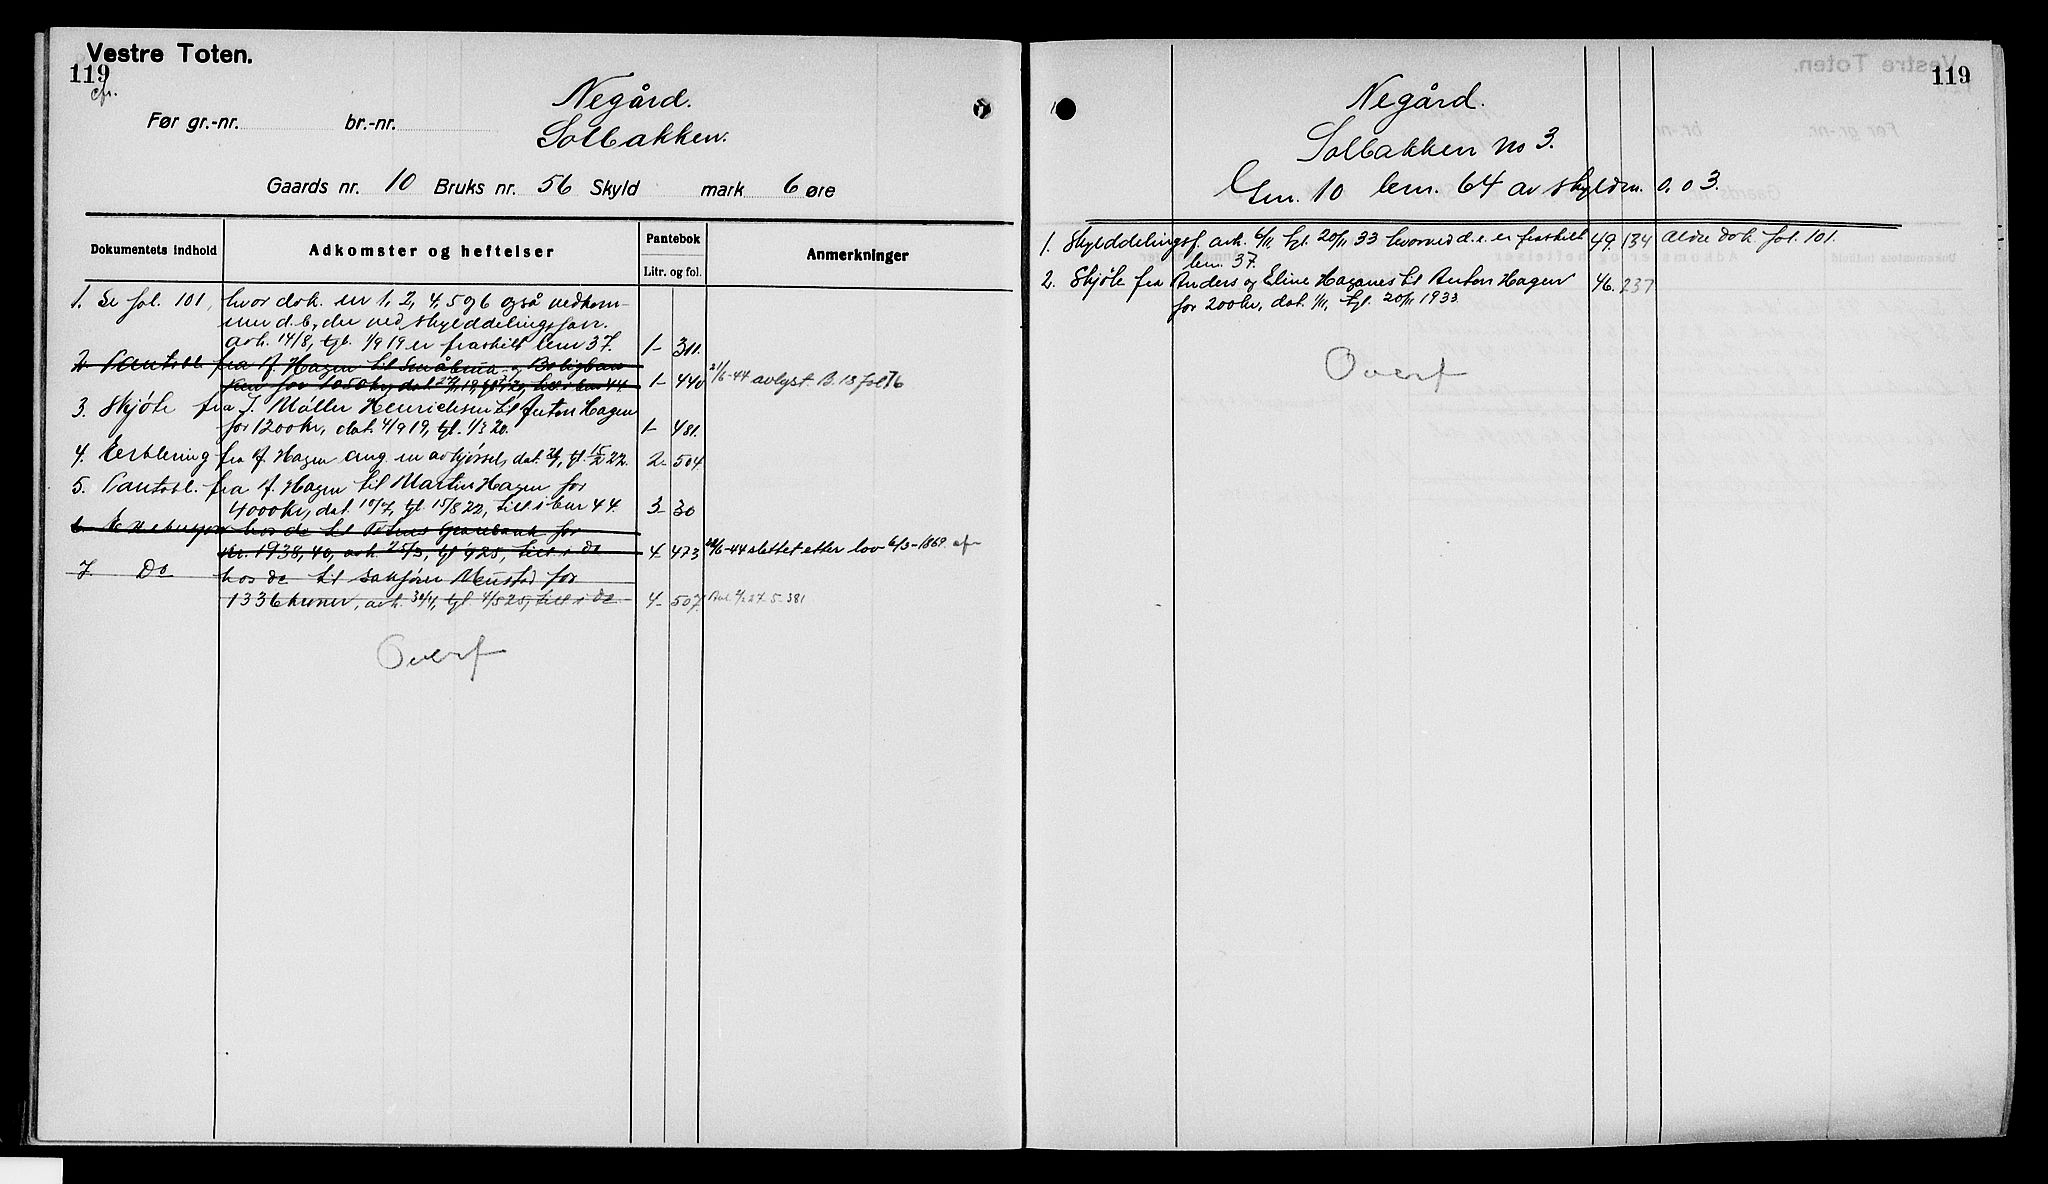 Vestre Toten.
119
cfr.
Negård.
Før gr.-nr. br.-nr.
Solbakken.
Gaards nr. 10 Bruks nr. 56 Skyld mark 6 øre
Dokumentets indhold Adkomster og heftelser Pantebok Litr. og fol. Anmerkninger
1. Se fol. 101, hvor dok. nr 1, 2, 4, 5 og 6 også vedkom-
mer d. b, der ved skylddelingsforr.
avh. 14/8, tgl. 1/9 19 er fraskilt bnr 37. 1- 311.
2 Pantobl. fra A. Hagen til Småbruk og Boligban
ken for 1050 kr, dat 19, tgl 20, till i bnr 44. 1- 440 21/6-44 avlyst B. 13 fol 76
3. Skjöte fra J. Møller Henrichsen til Anton Hagen
for 1200 kr, dat. 4/9 19, tgl. 1/3 20. 1- 481.
4. Erklæring fra A. Hagen ang. en avkjørsel, dat. tgl. 15/2 22. 2- 504.
5. Pantobl. fra A. Hagen til Martin Hagen for
4000 kr, dat. 10/7, tgl 15/8 22, till i bnr 44. 3- 30
6. hos do til Totens for
kr. 1938,40, avh 25/3, tgl 25, till i do 4- 473 21/6-44 slettet etter lov 6/3-1869. cfr
7. Do hos do til sakfører Mustad for
1336 kroner, avh. 30/4, tgl. 4/5 25, till i do 4- 507. Avl. 27. 5-381
Overf
119
Negård.
Solbakken No 3.
Gnr. 10 bnr. 64 av skyldm. 0.03.
1. Skylddelingsf. avh. 6/11 tgl. 20/11 33 hvorved d.e. er fraskilt 49 134 Ældre dok. fol. 101.
bnr. 37.
2. Skjöte fra Anders og Eline Haganes til Anton Hagen 46. 237
for 200 kr, dat. 1/11, tgl. 20/11 1933
Overf